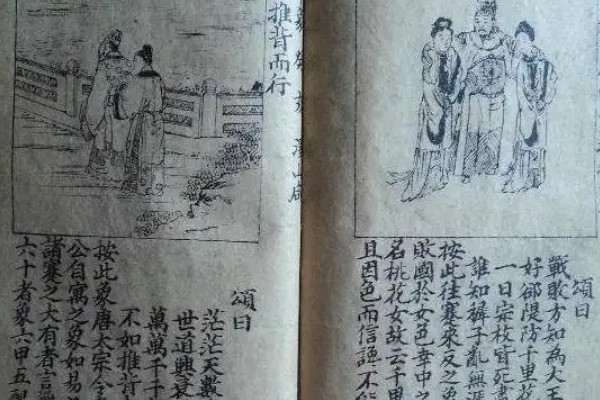 頌曰
戰敗方知為大王
好卻隄防十里花
一日宗枝皆死
誰知褲子亂無涯
按此往蹇來反之象
敗國於女色幸中之
名桃花女故云千里
且因色而信讒不能
推背而行
頌曰
茫茫天數
世道興衰
萬萬千千
不如推背
按此象唐太宗令
公自寓之象如易
諸蹇之大有者言
六十者象六甲五